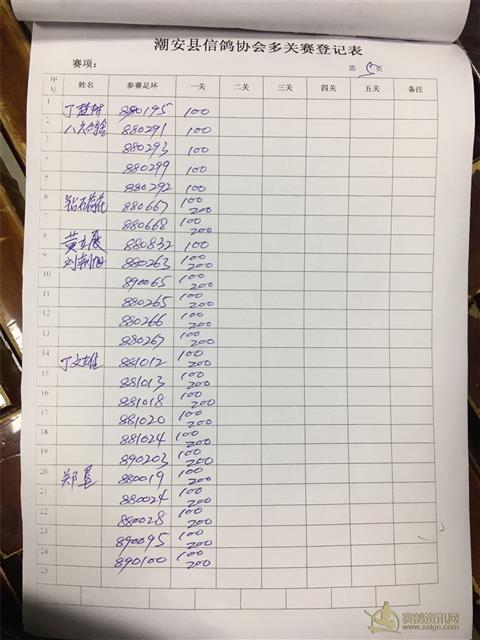 潮安县信鸽协会多关赛登记表
赛项： 第 5 页
序号 姓名 参赛足环 一关 二关 三关 四关 五关 备注
1 丁 880195 100
2 880291 100
3 880293 100
4 880299 100
5 880292 100
6 钻石荷花 880667 100 200
7 880668 100 200
8 黄 880832 100
9 刘 880263 100 200
10 890065 100 200
11 880265 100 200
12 880266 100 200
13 880267 100 200
14 丁文雄 881012 100 200
15 881013 100 200
16 881018 100 200
17 881020 100 200
18 881024 100 200
19 890203 100 200
20 郑 880019 100 200
21 880024 100 200
22 880028 100 200
23 890095 100 200
24 890100 100 200
25
赛鸽资讯网
www.saige.com